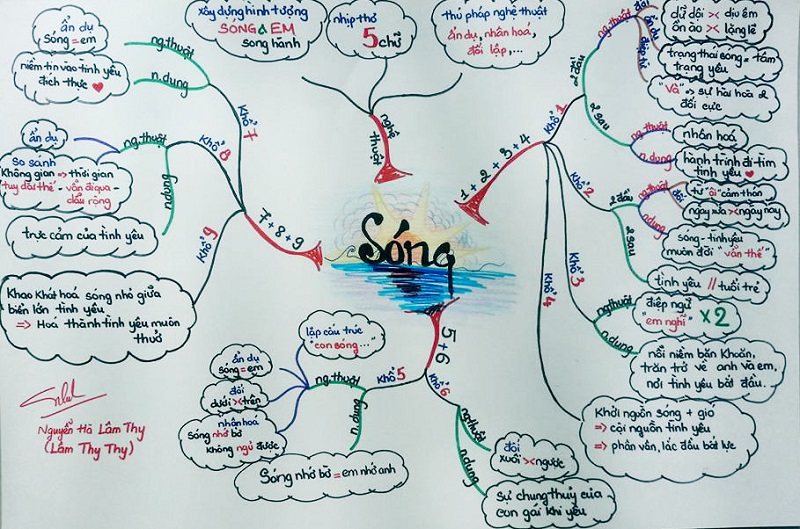 Sóng
nghệ
thuật
xây dựng hình tượng
SÓNG & EM
song hành
nhịp thơ
5 chữ
thủ pháp nghệ thuật
ẩn dụ, nhân hoá,
đối lập,...
1+2+3+4
Khổ 1
2 đầu
ng.thuật
đối
ẩn dụ
điệp từ
dữ dội >< dịu êm
ồn ào >< lặng lẽ
trạng thái sóng = tâm
trạng yêu
n.dung
"Và" => sự hài hoà 2
đối cực
2 sau
ng.thuật
nhân hoá
n.dung
hành trình đi tìm
tình yêu
Khổ 2
2 đầu
ng.thuật
đối
từ "ôi" cảm thán
ngày xưa >< ngày nay
n.dung
sóng - tình yêu
muôn đời "vẫn thế"
2 sau
tình yêu // tuổi trẻ
Khổ 3
ng.thuật
điệp ngữ
"em nghĩ" x2
n.dung
nỗi niềm băn khoăn,
trăn trở về anh và em,
nơi tình yêu bắt đầu.
Khổ 4
Khởi nguồn sóng + gió
=> cội nguồn tình yêu
=> phân vân, lắc đầu bất lực
5+6
Khổ 5
ng.thuật
lặp cấu trúc
"con sóng..."
ẩn dụ
sóng = em
đối
dưới >< trên
nhân hoá
Sóng nhớ bờ
không ngủ được
n.dung
Sóng nhớ bờ = em nhớ anh
Khổ 6
ng.thuật
đối
xuôi >< ngược
n.dung
sự chung thuỷ của
con gái khi yêu
7+8+9
Khổ 7
ng.thuật
ẩn dụ
sóng = em
n.dung
niềm tin vào tình yêu
đích thực
Khổ 8
ng.thuật
ẩn dụ
so sánh
Không gian => thời gian
tuy dài thế - vẫn đi qua -
dẫu rộng
n.dung
trực cảm của tình yêu
Khổ 9
Khao khát hoá sóng nhỏ giữa
biển lớn tình yêu
=> Hoá thành tình yêu muôn
thuở
Nguyễn Hà Lâm Thy
(Lâm Thy Thy)